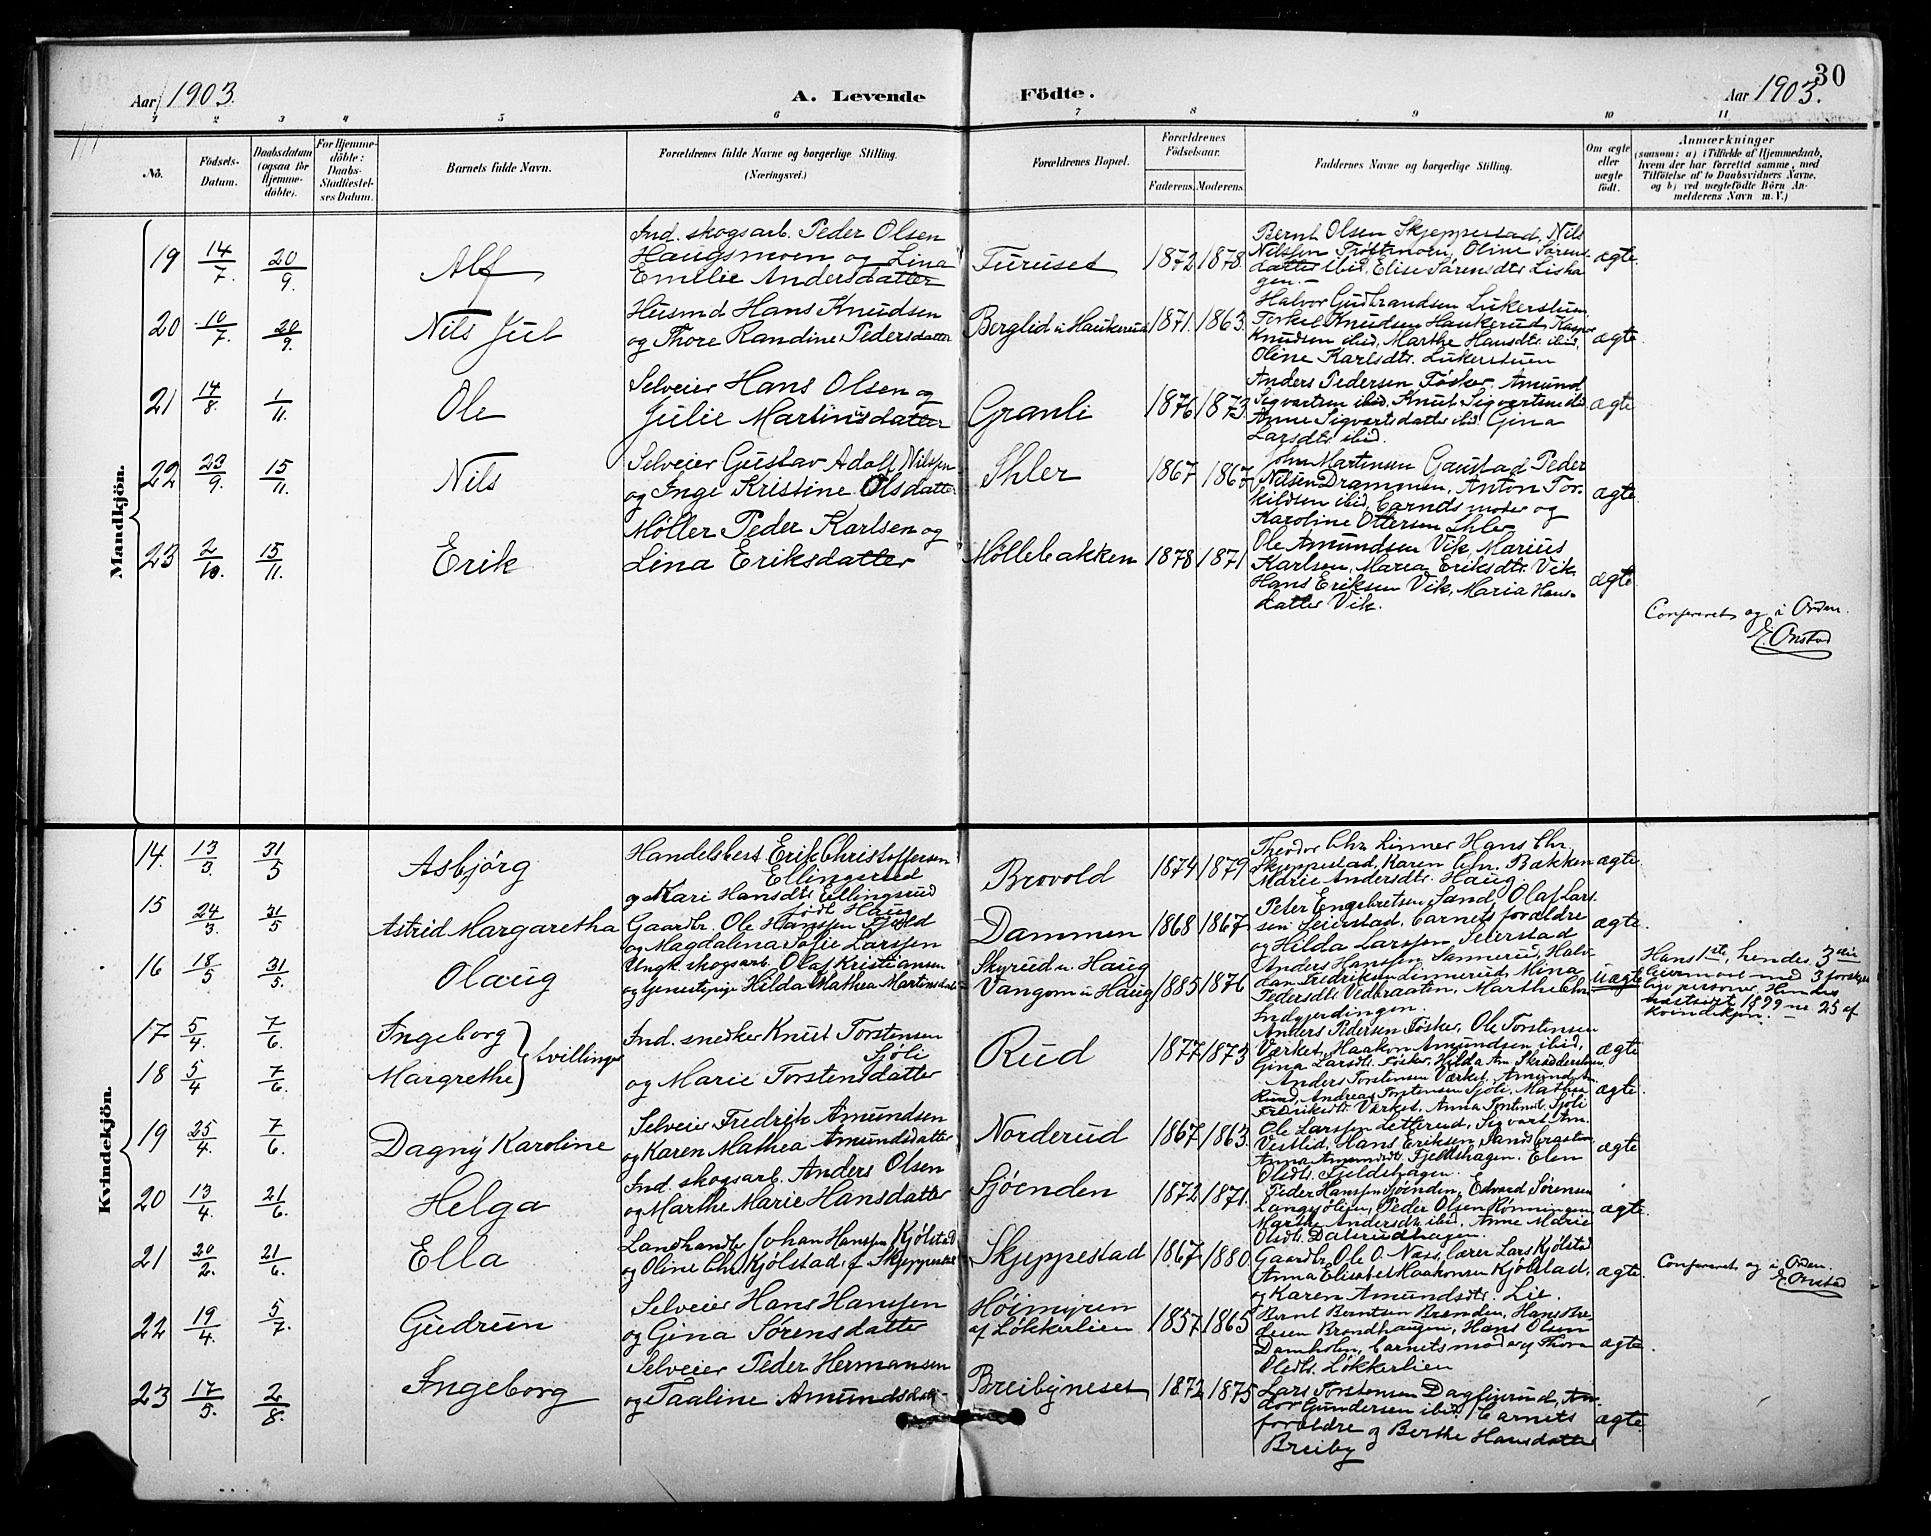 Aar 1903. A. Levende Födte. Aar 1903. 30
1 2 3 4 5 6 7 8 9 10 11
No.
Födsels-Datum.
Daabsdatum (ogsaa for Hjemmedöbte).
For Hjemmedöbte: Daabs-Stadfæstelses Datum.
Barnets fulde Navn.
Forældrenes fulde Navne og borgerlige Stilling. (Næringsvei.)
Forældrenes Bopæl.
Forældrenes Födselsaar.
Faderens. Moderens.
Faddernes Navne og borgerlige Stilling.
Om ægte eller uægte födt.
Anmærkninger
(saasom: a) i Tilfælde af Hjemmedaab, hvem der har forrettet samme, med Tilföielse af to Daabsvidners Navne, og b) ved uægtefödte Börn Anmelderens Navn m. V.)
Mandkjön.
19 14/7. 20/9. Alf
Ind. skogsarb. Peder Olsen
Haugsmoen og Lina
Emilie Andersdatter
Furuset 1872 1878.
Bernt Olsen Skjeppestad, Nils
Nilssen Trøftmoen, Oline Sørens-
datter ibid, Elise Sørensdtr. Liaha-
gen.
ægte.
20 10/7. 20/9. Nils Jul
Husmd Hans Knudsen
og Thore Randine Pedersdatter
Berglid u. Haukerud 1871. 1863.
Halvor Gudbrandsen Lukerstuen
Torkel Knudsen Haukerud, Kasper
Knudsen ibid, Marthe Hansdtr. ibid,
Oline Karlsdtr. Lukerstuen
ægte.
21 14/8. 1/11. Ole
Selveier Hans Olsen og
Julie Martinisdatter
Granli 1876 1873.
Anders Pedersen Føsker, Amund
Sigvartsen ibid. Knut Sigvartsen ibid.
Anne Sigvartsdatter ibid. Gina
Larsdtr. ibid.
ægte.
22 23/9. 15/11. Nils
Selveier Gustav Adolf Nilssen
og Inge Kristine Olsdatter
Ihler 1867 1867
John Martinsen Gaustad, Peder
Nilsen Drammen, Anton Tor-
kildsen ibid, barnets moder og
Karoline Ottersen Ihler
ægte.
23 2/10. 15/11. Erik
Møller Peder Karlsen og
Lina Eriksdatter
Møllebakken 1878 1871
Ole Amundsen Vik, Marius
Karlsen, Maria Eriksdtr. Vik.
Hans Eriksen Vik, Maria Hans-
datter Vik.
ægte.
Confereret og i Orden.
E. Onstad
Kvindekjön.
14. 13/3. 31/5 Asbjørg
Handelsbest. Erik Christoffersen
Ellingsrud
og Kari Hansdtr. Ellingsrud
født Haug
Brovold 1874 1879
Theodor Chr. Linner Hans Chr.
Skjeppestad, Karen Chr. Bækken
Marie Andersdtr. Haug.
ægte.
15 24/3. 31/5 Astrid Margaretha
Gaardbr. Ole Hanssen Fjeld
og Magdalena Sofie Larssen
Dammen 1868 1867
Peter Engebretsen Sand, Olaf Lars-
sen Seierstad, barnets forældre
og Hilda Larssen Seierstad
ægte.
16 18/5 31/5. Olaug
Ungk. skogsarb. Olaf Kristiansen
og tjenestepige Hilda Mathea Martinsdatter
Skyrud u. Haug
Vangom u. Haug 1885 1876
Anders Hanssen Sannerud, Halv-
dan Fredriksen Linnerud, Mina
Pedersdtr. Vedbraaten, Marthe Chr.
Indgjerdingen.
uægte
Hans 1ste, hendes 3die
leiermaal med 3 forskjel-
lige personer. Hendes
17 5/4. 7/6. Ingeborg
18 5/4 7/6. Margrethe } tvillinger
Ind. snedker Knut Torstensen
Sjøli
og Marie Torstensdatter
Rud 1877 1873
Anders Pedersen Føsker, Ole Torstensen
Værket, Haakon Amundsen ibid,
Gina Larsdtr. Føsker, Hilda Am. Skrædderstuen
ægte
Anders Torstensen Værket, Amund A.
Rund, Andreas Torstensen Sjøli, Mathea
Fredriksdtr. Værket, Anna Torstensdtr. Sjøli
ægte.
19 25/4. 7/6. Dagny Karoline
Selveier Fredrik Amundsen
og Karen Mathea Amundsdatter
Norderud 1867 1863.
Ole Larssen Letterud, Sigvart Am.
Vestlid, Hans Eriksen Sandbraaten,
Anna Amundsdtr. Fjeldshagen. Elen
Olsdtr. Fjeldshagen.
ægte
20 13/4. 21/6. Helga
Ind. skogsarb. Anders Olsen
og Marthe Marie Hansdatter
Sjøenden 1872 1871.
Peder Hanssen Sjøenden, Edvard Sørensen
Langsjølien, Peder Olsen Rønningen
Marthe Andersdtr. ibid. Anne Marie
Olsdtr. Dalsrudhagen.
ægte.
21 20/2. 21/6. Ella
Landhandler Johan Hanssen Kjølstad
og Oline Chr. Kjølstad, f. Skjeppestad
Skjeppestad 1867 1880
Gaardbr. Ole O. Næss, lærer Lars Kjølstad
Anna Elisabet Haakonsen Kjølstad,
og Karen Amundsdtr. Lie.
ægte.
Confereret og i Orden.
E. Onstad
22 19/4. 5/7. Gudrun
Selveier Hans Hanssen
og Gina Sørensdatter
Høimyren
af Løkkerlien 1857 1865
Bernt Berntsen Brenden, Hans Pe-
dersen Brandhaugen, Hans Olsen
Damholen, barnets moder og Thora
Olsdtr. Løkkerlien
ægte.
23 17/5. 2/8. Ingeborg
Selveier Peder Hermansen
og Paaline Amundsdatter
Breibyneset 1872 1875
Lars Torstensen Dagfinrud, An-
dor Gundersen ibid, barnets
forældre og Berthe Hansdatter
Breiby
ægte.